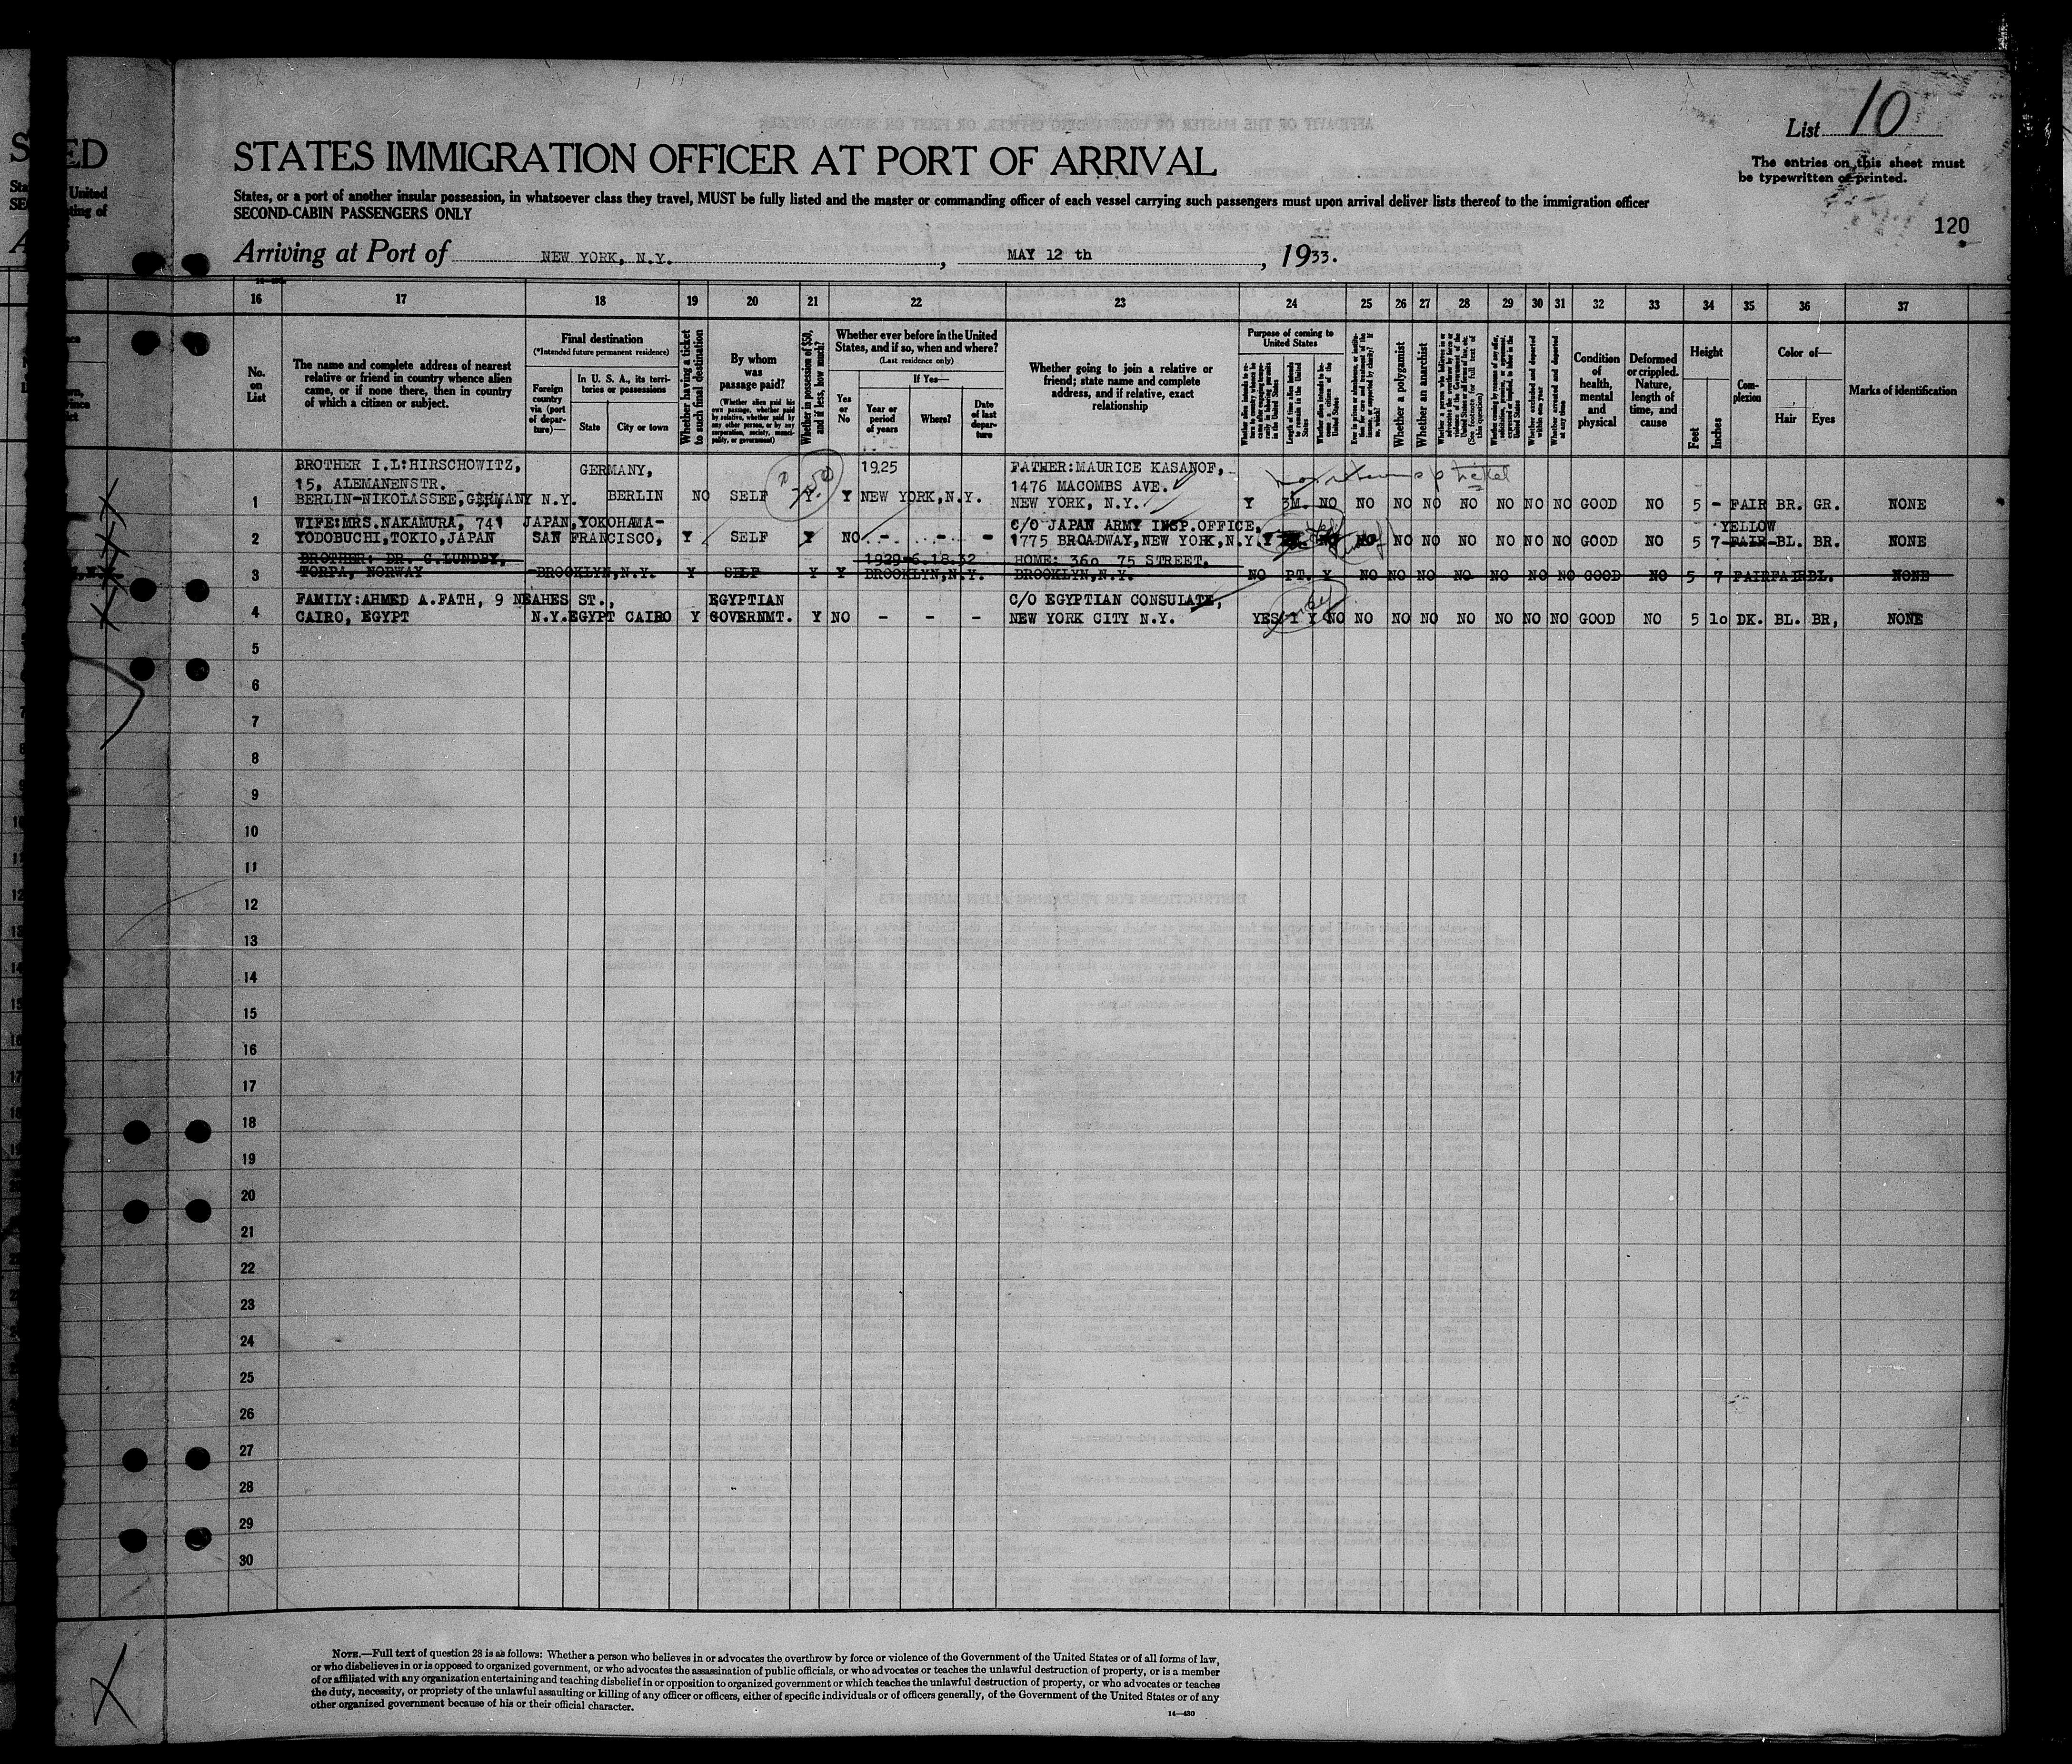 List 10
The entries on this sheet must
be typewritten or printed.
120
STATES IMMIGRATION OFFICER AT PORT OF ARRIVAL
States, or a port of another insular possession, in whatsoever class they travel, MUST be fully listed and the master or commanding officer of each vessel carrying such passengers must upon arrival deliver lists thereof to the immigration officer
SECOND-CABIN PASSENGERS ONLY
Arriving at Port of NEW YORK, N.Y. , MAY 12 th , 1933.
16 17 18 19 20 21 22 23 24 25 26 27 28 29 30 31 32 33 34 35 36 37
No. on List
The name and complete address of nearest
relative or friend in country whence alien
came, or if none there, then in country
of which a citizen or subject.
Final destination
(*Intended future permanent residence)
Foreign country via (port of departure)—
In U. S. A., its territories or possessions
State
City or town
Whether having a ticket to such final destination
By whom was passage paid?
(Whether alien paid his own passage, whether paid by relative, whether paid by any other person, or by any corporation, society, municipality, or government)
Whether in possession of $50, and if less, how much?
Whether ever before in the United
States, and if so, when and where?
(Last residence only)
Yes or No
If Yes—
Year or period of years
Where?
Date of last departure
Whether going to join a relative or
friend; state name and complete
address, and if relative, exact
relationship
Purpose of coming to
United States
Whether a polygamist
Whether an anarchist
Condition of health, mental and physical
Deformed or crippled. Nature, length of time, and cause
Height
Feet
Inches
Complexion
Color of—
Hair
Eyes
Marks of identification
BROTHER I.L:HIRSCHOWITZ, GERMANY, 1925 FATHER:MAURICE KASANOF,
15, ALEMANENSTR. 1476 MACOMBS AVE.
1 BERLIN-NIKOLASSEE,GERMANY N.Y. BERLIN NO SELF Y. Y NEW YORK,N.Y. NEW YORK, N.Y. Y 3M. NO NO NO NO NO NO NO NO GOOD NO 5 - FAIR BR. GR. NONE
WIFE:MRS.NAKAMURA, 741 JAPAN,YOKOHAMA- C/O JAPAN ARMY INSP.OFFICE, YELLOW
2 YODOBUCHI,TOKIO,JAPAN SAN FRANCISCO, Y SELF Y NO - - - 1775 BROADWAY,NEW YORK,N.Y. Y NO NO NO NO NO NO NO GOOD NO 5 7 FAIR BL. BR. NONE
BROTHER: DR. C.LUNDBY, 1929-6.18.32 HOME: 36o 75 STREET,
3 TORPA, NORWAY BROOKLYN,N.Y. Y SELF Y Y BROOKLYN,N.Y. BROOKLYN,N.Y. NO PT. Y NO NO NO NO NO NO NO GOOD NO 5 7 FAIR FAIR BL. NONE
FAMILY:AHMED A.FATH, 9 NEAHES ST., EGYPTIAN C/O EGYPTIAN CONSULATE,
4 CAIRO, EGYPT N.Y.EGYPT CAIRO Y GOVERNMT. Y NO - - - NEW YORK CITY N.Y. YES 1 Y NO NO NO NO NO NO NO NO GOOD NO 5 1o DK. BL. BR, NONE
5
6
7
8
9
10
11
12
13
14
15
16
17
18
19
20
21
22
23
24
25
26
27
28
29
30
NOTE.—Full text of question 28 is as follows: Whether a person who believes in or advocates the overthrow by force or violence of the Government of the United States or of all forms of law,
or who disbelieves in or is opposed to organized government, or who advocates the assassination of public officials, or who advocates or teaches the unlawful destruction of property, or is a member
of or affiliated with any organization entertaining and teaching disbelief in or opposition to organized government or which teaches the unlawful destruction of property, or who advocates or teaches
the duty, necessity, or propriety of the unlawful assaulting or killing of any officer or officers, either of specific individuals or of officers generally, of the Government of the United States or of any
other organized government because of his or their official character.
14—430